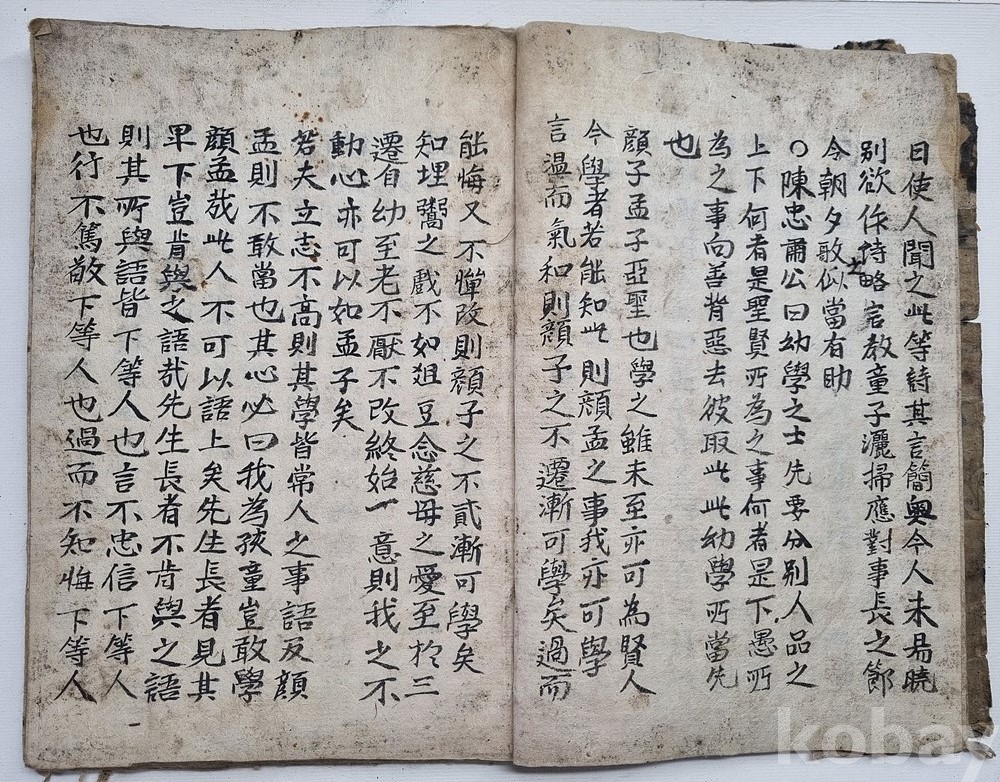 日使人聞之此等詩其言簡奧今人未易曉
別欲作詩略言教童子灑掃應對事長之節
令朝夕歌之似當有助
○陳忠肅公曰幼學之士先要分別人品之
上下何者是聖賢所為之事何者是下愚所
為之事向善背惡去彼取此此幼學所當先
也
顏子孟子亞聖也學之雖未至亦可為賢人
今學者若能知此則顏孟之事我亦可學
言溫而氣和則顏子之不遷漸可學矣過而
能悔又不憚改則顏子之不貳漸可學矣
知埋鬻之戲不如俎豆念慈母之愛至於三
遷自幼至老不厭不改終始一意則我之不
動心亦可以如孟子矣
若夫立志不高則其學皆常人之事語及顏
孟則不敢當也其心必曰我為孩童豈敢學
顏孟哉此人不可以語上矣先生長者見其
卑下豈肯與之語哉先生長者不肯與之語
則其所與語皆下等人也言不忠信下等人
也行不篤敬下等人也過而不知悔下等人
kobay